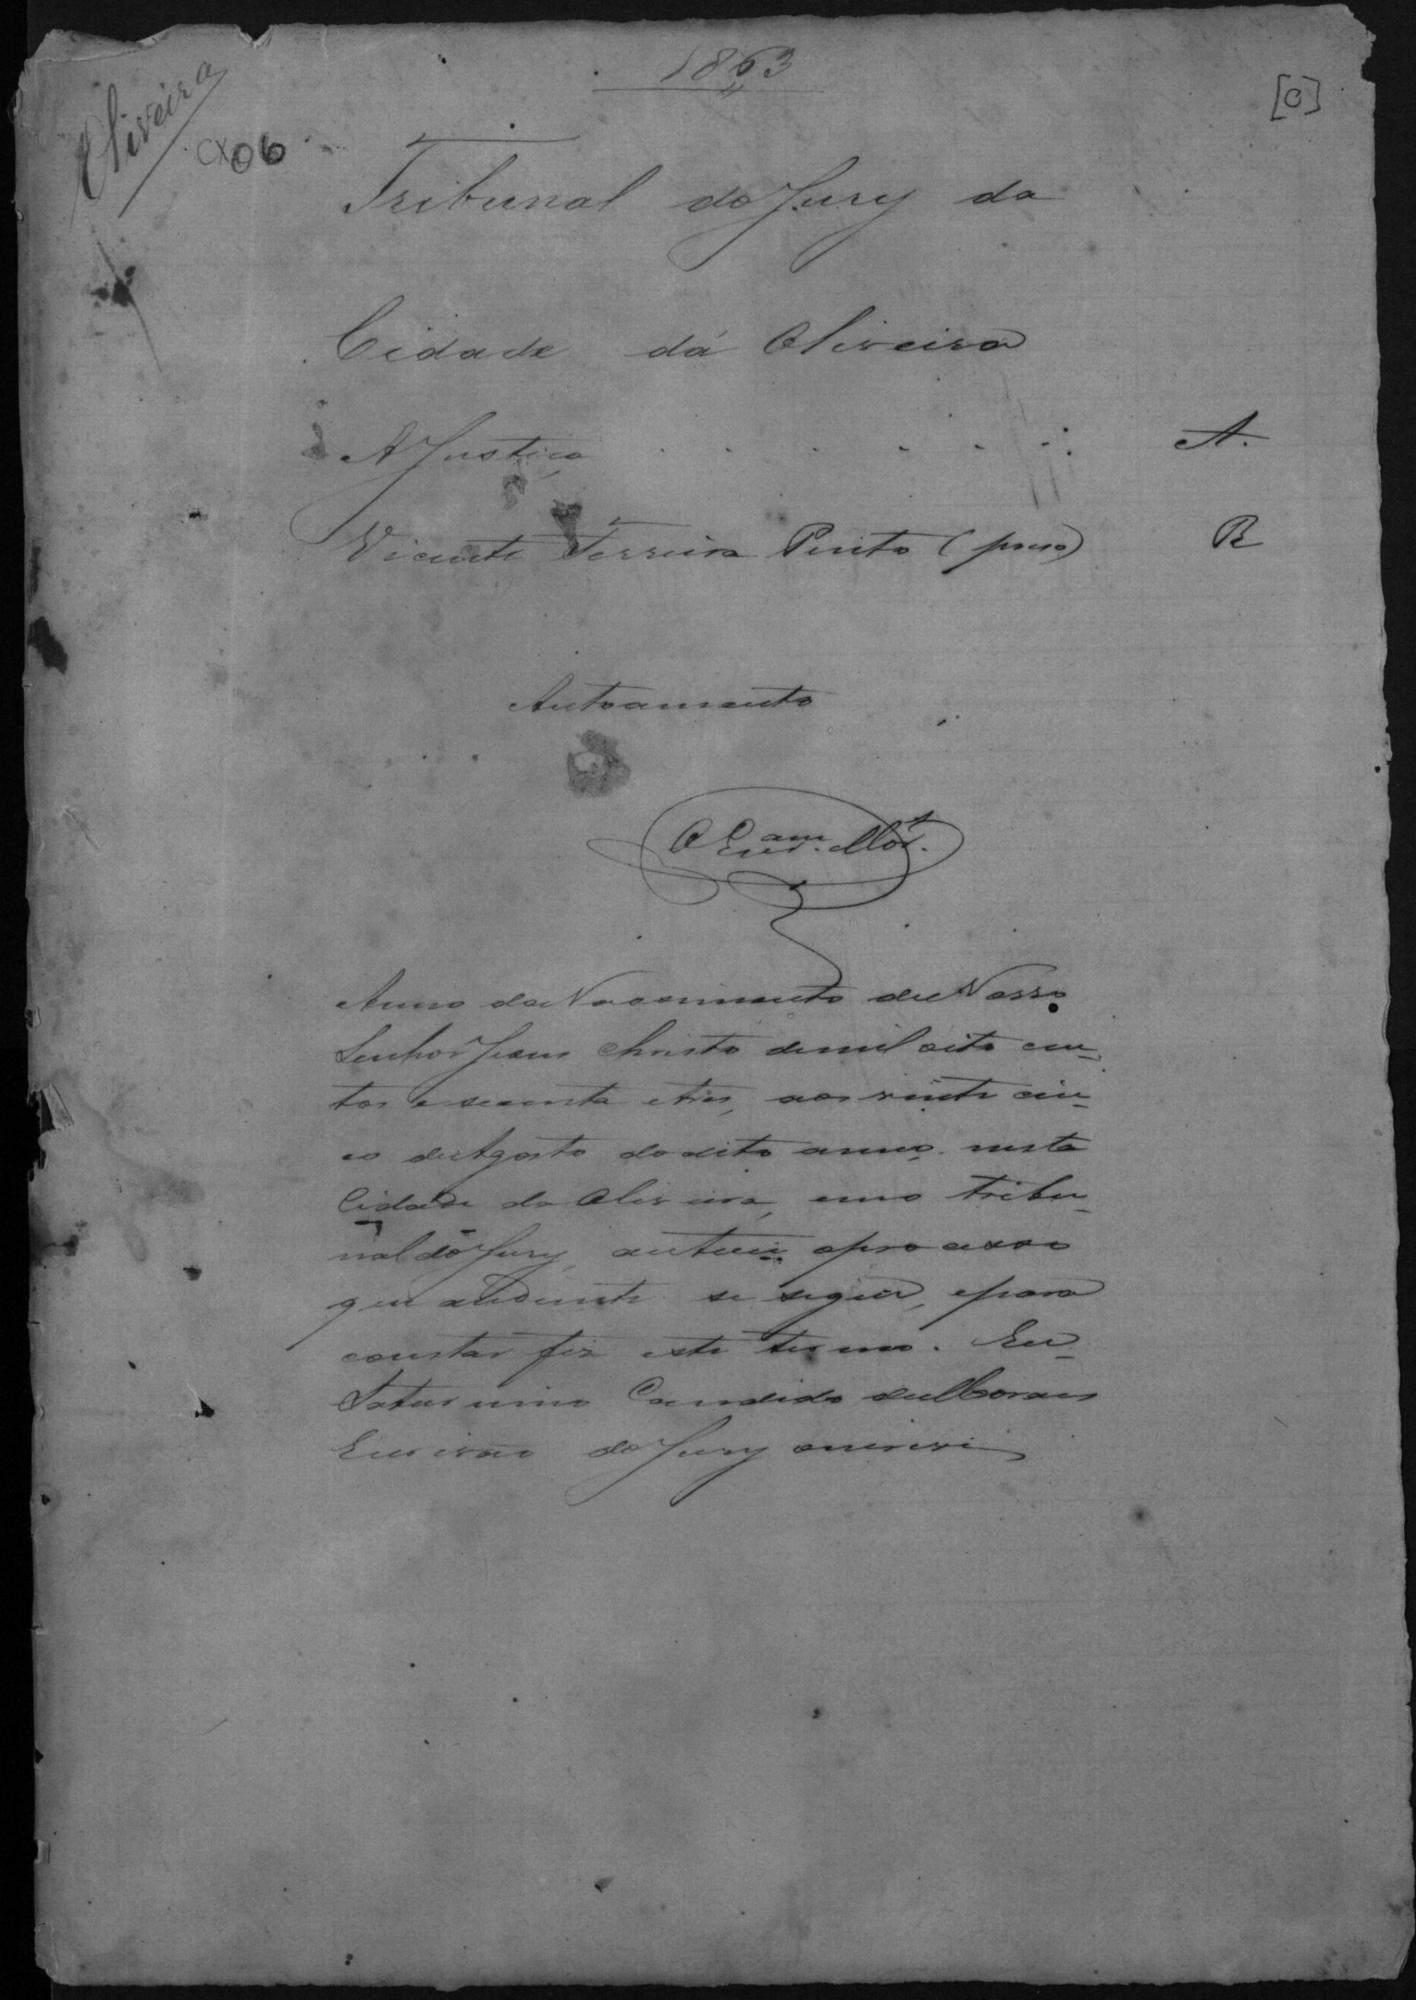 1863
[0]
Oliveira
CX06
Tribunal do Jury da
Cidade dá Oliveira
A Justiça . . . . . . A.
Vicente Ferreira Pinto (preso) R
Autoamento
O Escr.am Mor.s
Anno do Nascimento de Nosso
Senhor Jesus Christo de mil oito cen-
tos e secenta e tres, aos vinte cin-
co de Agosto do dito anno nesta
Cidade da Oliveira, em o Tribu-
nal do Jury, autuei o processo
que adiente se segue, e para
constar fiz este termo. Eu
Saturnino Candido de Moraes
Escrivão do Jury o escrevi